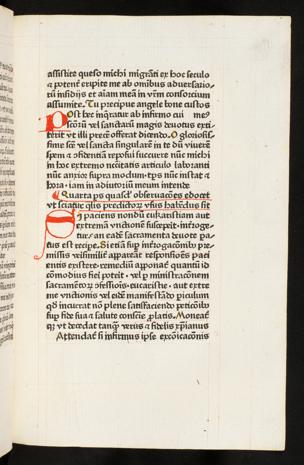 assistite queso michi migrāti ex hoc seculo
⁊ potent́ eripite me ab omibus aduersario⁊
rū insidijs et aīam meā in vr̄m consorcium
assumite. Tu precipue angele bone custos
Post hec inq̄ratur ab infirmo cui
scōrū vel sanctarū magis deuotus exti-
terit vt illi precē offerat dicendo. O gloriosis-
sime scē vel sancta singularē in te dū viuerē
spem ⁊ ɔfidentiā reposui succurre nūc michi
in hoc extremo nc̄citatis articulo laboranti
nūc anxior supra modum. tp̄s nūc instat ⁊
hora. iam in adiutoriū meum intende
Quarta ps quasdā obseruacōnes edocet
vt sciatur qlis predictorꝫ vsus habēdus sit
Si paciens nondū eukaristiam aut
extremā vnctionē susceperit. interoge-
tur. an eadē sacramenta deuote pa-
tus est recipe. Si etiā sup interogacōnibꝫ pre-
missis velsimilib apparent responsiōes paci
entis exsistere. remediū apponat́ quantū id
cōmodius fieri poteit. vel p ministracōnem
sacramentorꝫ ɔfessiois. eucaristie. aut extre
me vnctionis vel edā manifestādo piculum
qd incurrat nō plene satisfaciendo peticōnibꝫ
sup fide sua ⁊ salute conscie platis. Moneat́
qꝫ vt decedat tanqꝫ verus ⁊ fidelis xp̄ianus
Attendat́ si infirmus ipse excōicacōnis